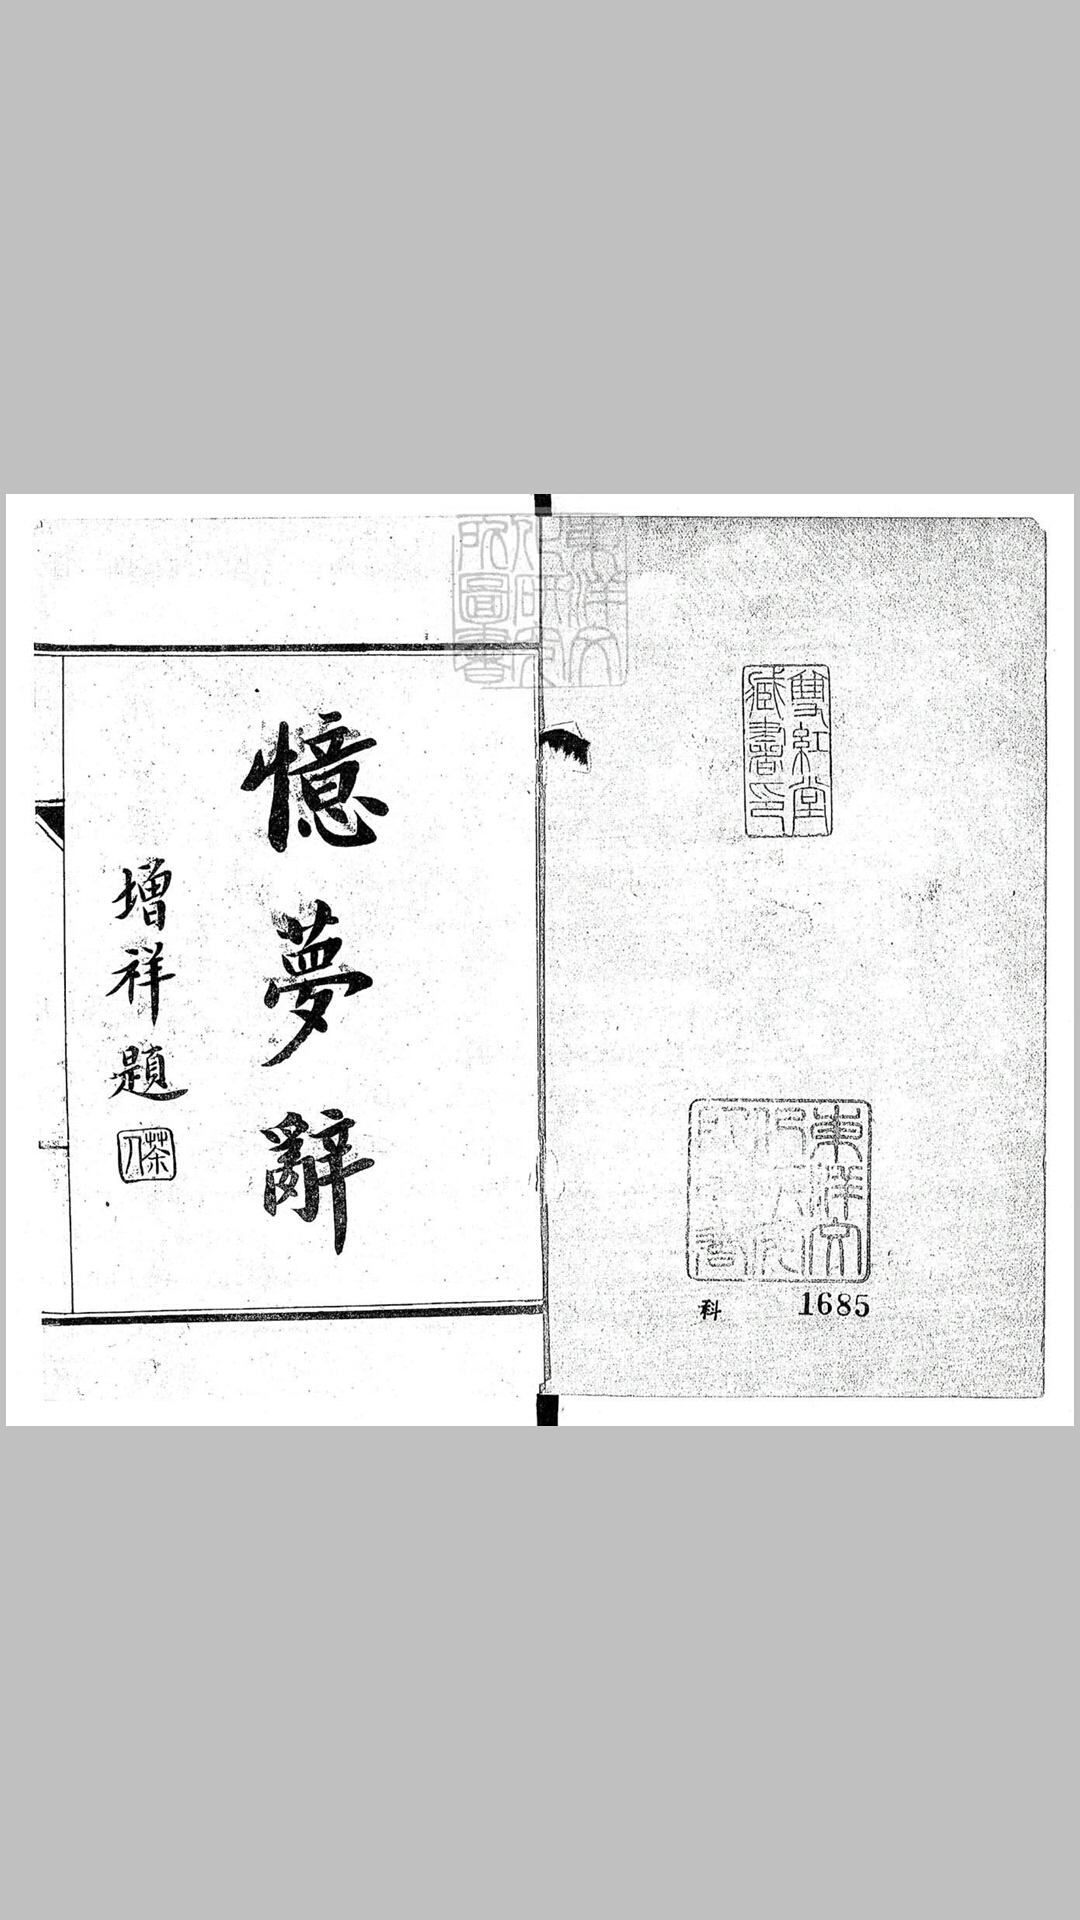 雙紅堂
藏書印
東洋文
化研究
所圖書
科 1685
東洋文
化研究
所圖書
憶夢辭
增祥題
茶人